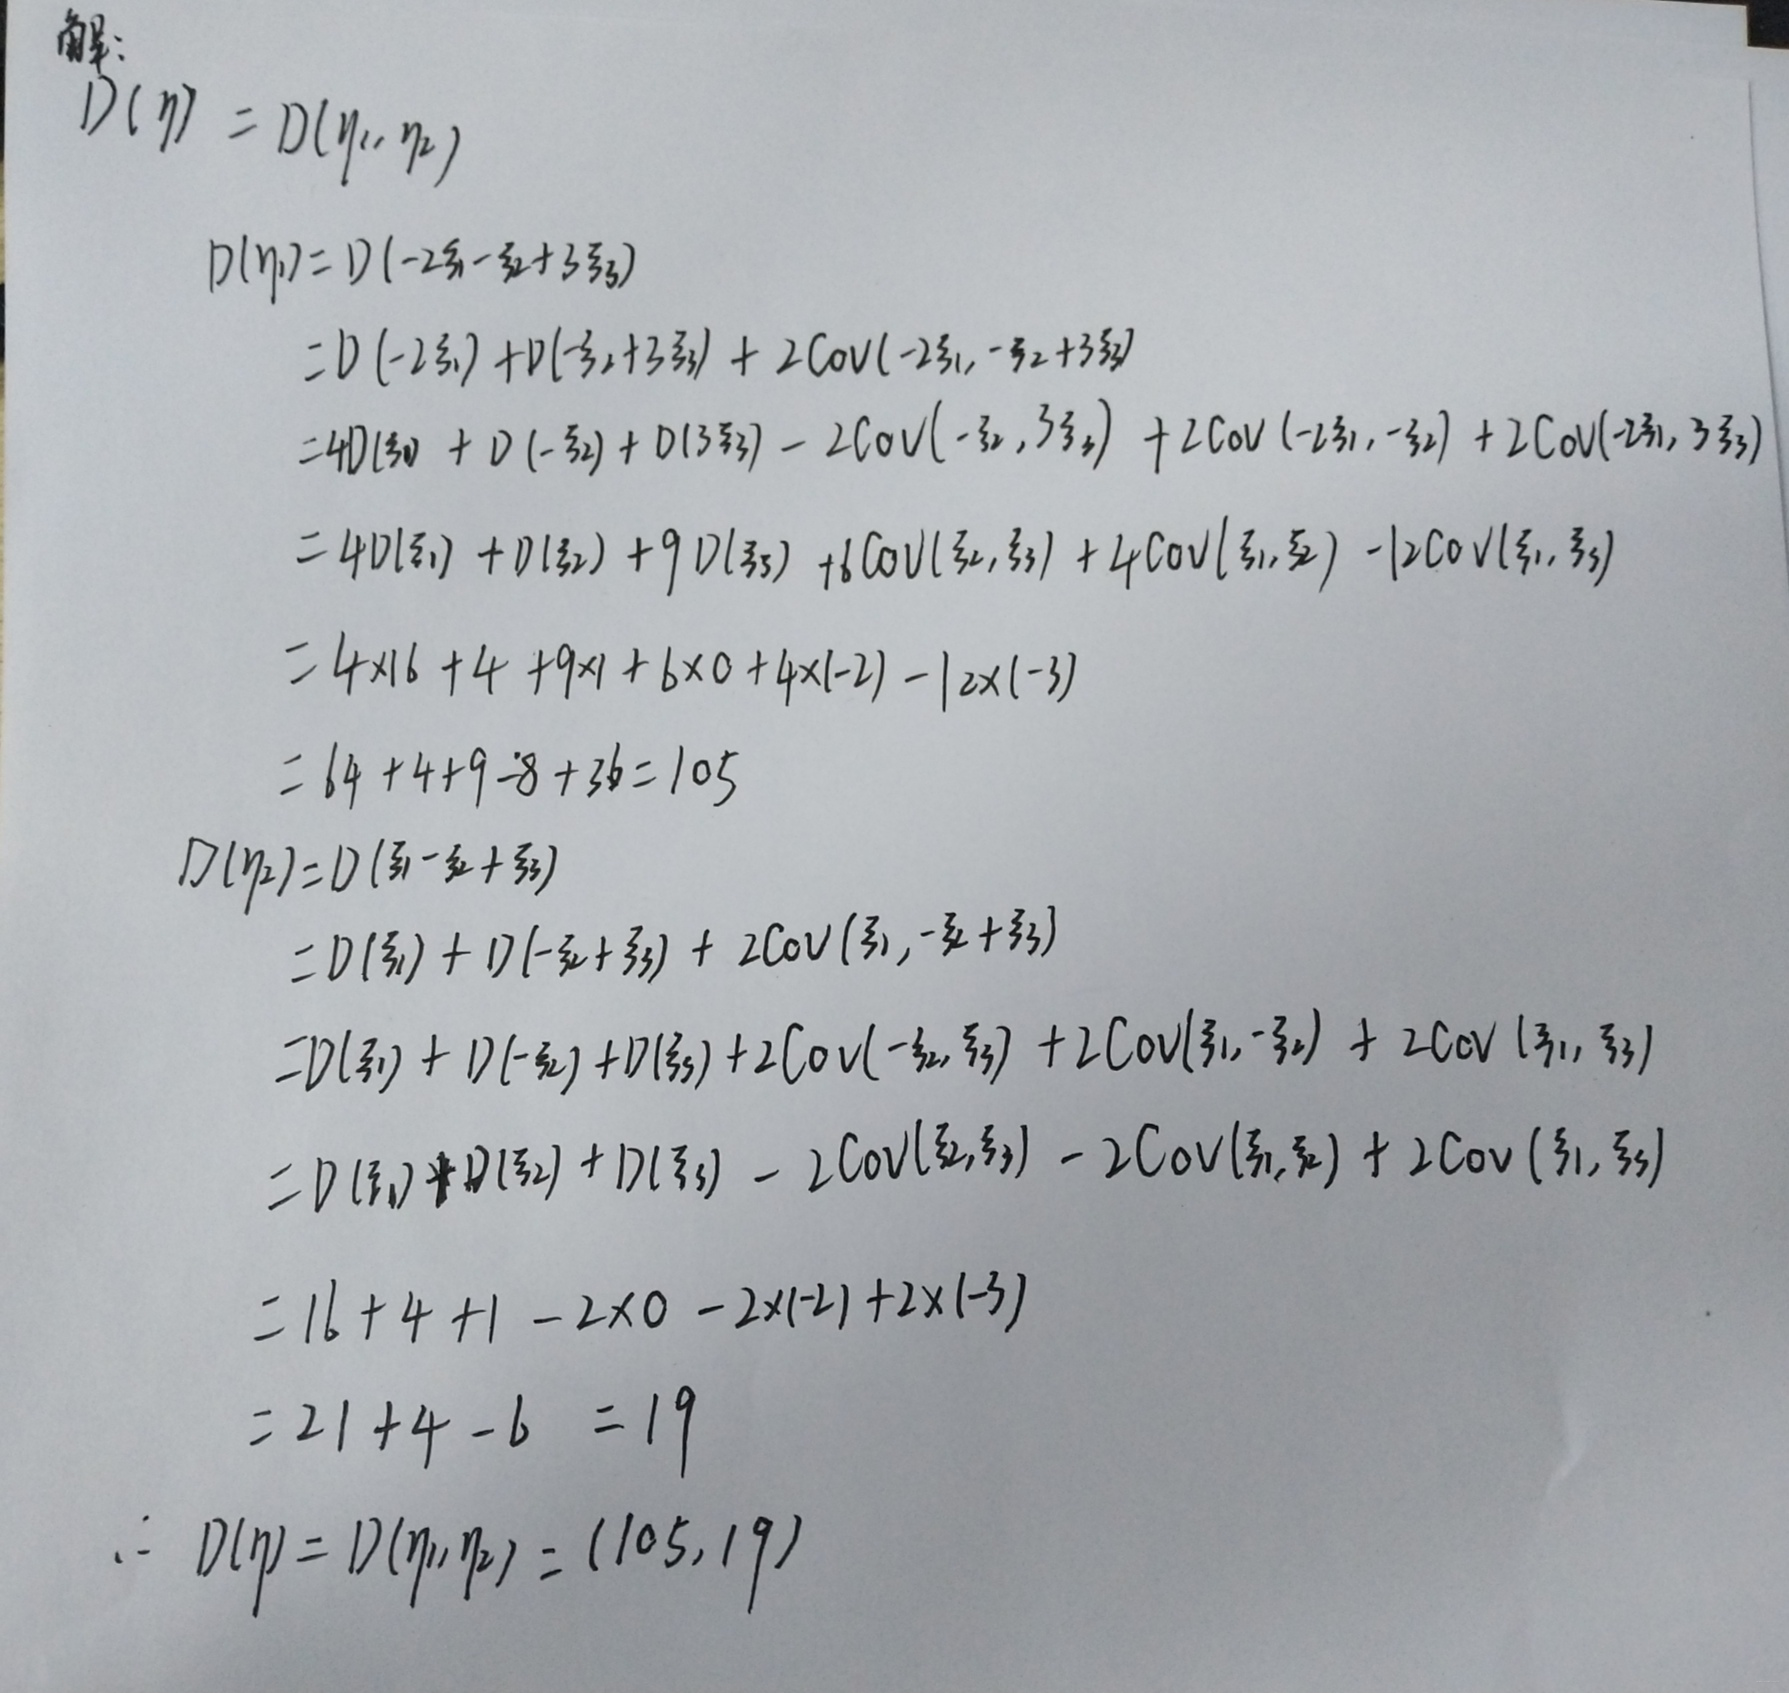 解:
D(η) = D(η₁, η₂)
D(η₁) = D(-2ξ₁-ξ₂+3ξ₃)
=D(-2ξ₁)+D(-ξ₂+3ξ₃) + 2Cov(-2ξ₁, -ξ₂+3ξ₃)
=4D(ξ₁) + D(-ξ₂) + D(3ξ₃) - 2Cov(-ξ₂, 3ξ₃) + 2Cov(-2ξ₁, -ξ₂) + 2Cov(-2ξ₁, 3ξ₃)
= 4D(ξ₁) + D(ξ₂) + 9D(ξ₃) +6Cov(ξ₂, ξ₃) + 4Cov(ξ₁, ξ₂) -12Cov(ξ₁, ξ₃)
= 4×16 + 4 + 9×1 + 6×0 + 4×(-2) - 12×(-3)
= 64 + 4 + 9 - 8 + 36 = 105
D(η₂) = D(ξ₁-ξ₂+ξ₃)
=D(ξ₁) + D(-ξ₂+ξ₃) + 2Cov(ξ₁, -ξ₂+ξ₃)
=D(ξ₁) + D(-ξ₂) + D(ξ₃) + 2Cov(-ξ₂, ξ₃) + 2Cov(ξ₁, -ξ₂) + 2Cov(ξ₁, ξ₃)
=D(ξ₁) + D(ξ₂) + D(ξ₃) - 2Cov(ξ₂, ξ₃) - 2Cov(ξ₁, ξ₂) + 2Cov(ξ₁, ξ₃)
= 16 + 4 + 1 - 2×0 - 2×(-2) + 2×(-3)
= 21 + 4 - 6 = 19
∴ D(η) = D(η₁, η₂) = (105, 19)